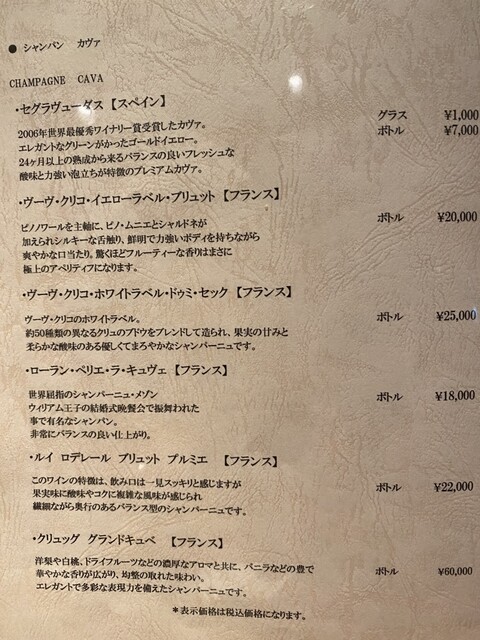 ● シャンパン　カヴァ
CHAMPAGNE　CAVA
・セグラヴューダス【スペイン】
グラス　¥1,000
2006年世界最優秀ワイナリー賞受賞したカヴァ。　ボトル　¥7,000
エレガントなグリーンがかったゴールドイエロー。
24ヶ月以上の熟成から来るバランスの良いフレッシュな
酸味と力強い泡立ちが特徴のプレミアムカヴァ。
・ヴーヴ・クリコ・イエローラベル・ブリュット【フランス】
ボトル　¥20,000
ピノノワールを主軸に、ピノ・ムニエとシャルドネが
加えられシルキーな舌触り、鮮明で力強いボディを持ちながら
爽やかな口当たり。驚くほどフルーティーな香りはまさに
極上のアペリティフになります。
・ヴーヴ・クリコ・ホワイトラベル・ドゥミ・セック【フランス】
ヴーヴ・クリコのホワイトラベル。　ボトル　¥25,000
約50種類の異なるクリュのブドウをブレンドして造られ、果実の甘みと
柔らかな酸味のある優しくてまろやかなシャンパーニュです。
・ローラン・ペリエ・ラ・キュヴェ【フランス】
世界屈指のシャンパーニュ・メゾン　ボトル　¥18,000
ウィリアム王子の結婚式晩餐会で振舞われた
事で有名なシャンパン。
非常にバランスの良い仕上がり。
・ルイ　ロデレール　ブリュット　プルミエ　【フランス】
このワインの特徴は、飲み口は一見スッキリと感じますが　ボトル　¥22,000
果実味に酸味やコクに複雑な風味が感じられ
繊細ながら奥行のあるバランス型のシャンパーニュです。
・クリュッグ　グランドキュベ　【フランス】
洋梨や白桃、ドライフルーツなどの濃厚なアロマと共に、バニラなどの豊で　ボトル　¥60,000
華やかな香りが広がり、均整の取れた味わい。
エレガントで多彩な表現力を備えたシャンパーニュです。
＊表示価格は税込価格になります。